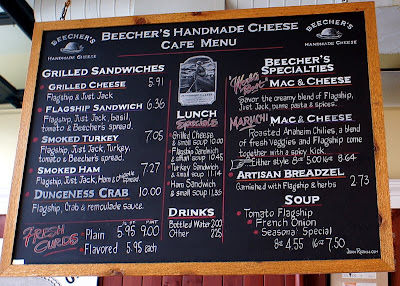 BEECHER'S
HANDMADE CHEESE
BEECHER'S HANDMADE CHEESE
CAFE MENU
BEECHER'S
HANDMADE CHEESE
GRILLED SANDWICHES
GRILLED CHEESE 5.91
Flagship & Just Jack
FLAGSHIP SANDWICH 6.36
Flagship, Just Jack, basil,
tomato & Beecher's spread.
SMOKED TURKEY 7.05
Flagship, Just Jack, Turkey,
tomato & Beecher's spread.
SMOKED HAM 7.27
Flagship, Just Jack, Ham & spread
DUNGENESS CRAB 10.00
Flagship, Crab & remoulade sauce.
FRESH CURDS
Plain 5.95 9.00
Flavored 5.95 each
LUNCH
Specials
Grilled Cheese
& small soup 10.00
Flagship Sandwich
& small soup 10.45
Turkey Sandwich
& small soup 11.14
Ham Sandwich
& small soup
DRINKS
Bottled Water 2.00
Other 2.25
BEECHER'S
SPECIALTIES
"World's Best" MAC & CHEESE
Savor the creamy blend of Flagship,
Just Jack, penne pasta & spices.
MARIACHI MAC & CHEESE
Roasted Anaheim Chilies, a blend
of fresh Veggies and Flagship come
together with a spicy kick.
Either style 8oz 5.00 16oz 8.64
ARTISAN BREADZEL
Garnished with Flagship & herbs 2.73
SOUP
Tomato Flagship
French Onion
Seasonal Special
8oz 4.55 16oz 7.50